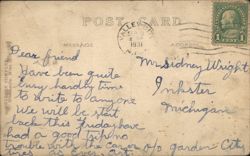 POST CARD
VALLEY
1931
1
MESSAGE
Dear friend
Have been quite
busy hardly time
to write to anyone
We will be start
back this Friday have
had a good trip no
trouble with the car or
Mr Sidney Wright
Inkster
Michigan
c/o Garden City